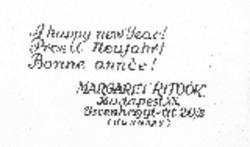 A happy new Year!
Prosit Neujahr!
Bonne année!
MARGARET RITOÓK
Budapest XI.
(HUNGARY)